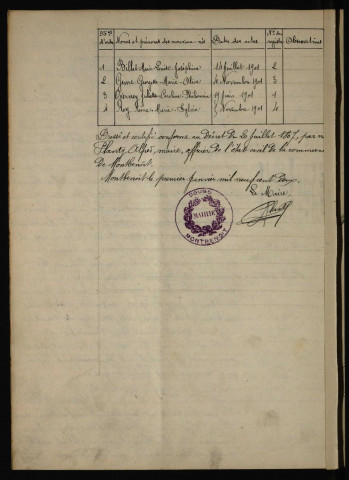 N os d'ordre Noms et prénoms des nouveaux-nés Dates des actes Nos du registre Observations
1 Billet Marie Louise Joséphine 14 Juillet 1901 2
2 Georgette Marie Olive 4 Novembre 1901 3
3 Juliette Caroline 19 Juin 1901 1
4 Roy Marie Sylvie 5 Novembre 1901 4
Dressé et certifié conforme au Décret du 20 Juillet 1807, par n
maire, officier de l'état civil de la commune
de Montbenoit.
Montbenoit le premier Janvier mil neuf cent deux
Le Maire,
DOUBS
MAIRIE
MONTBENOIT